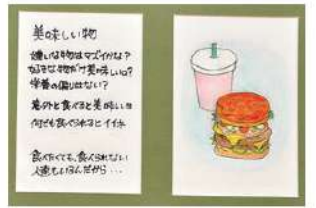 美味しい物
嫌いな物はマズイかな？
好きな物だけ美味しいの？
栄養の偏りはない？
意外と食べると美味しいヨ
何でも食べられるとイイネ
食べたくても、食べられない
人達もいるんだから…